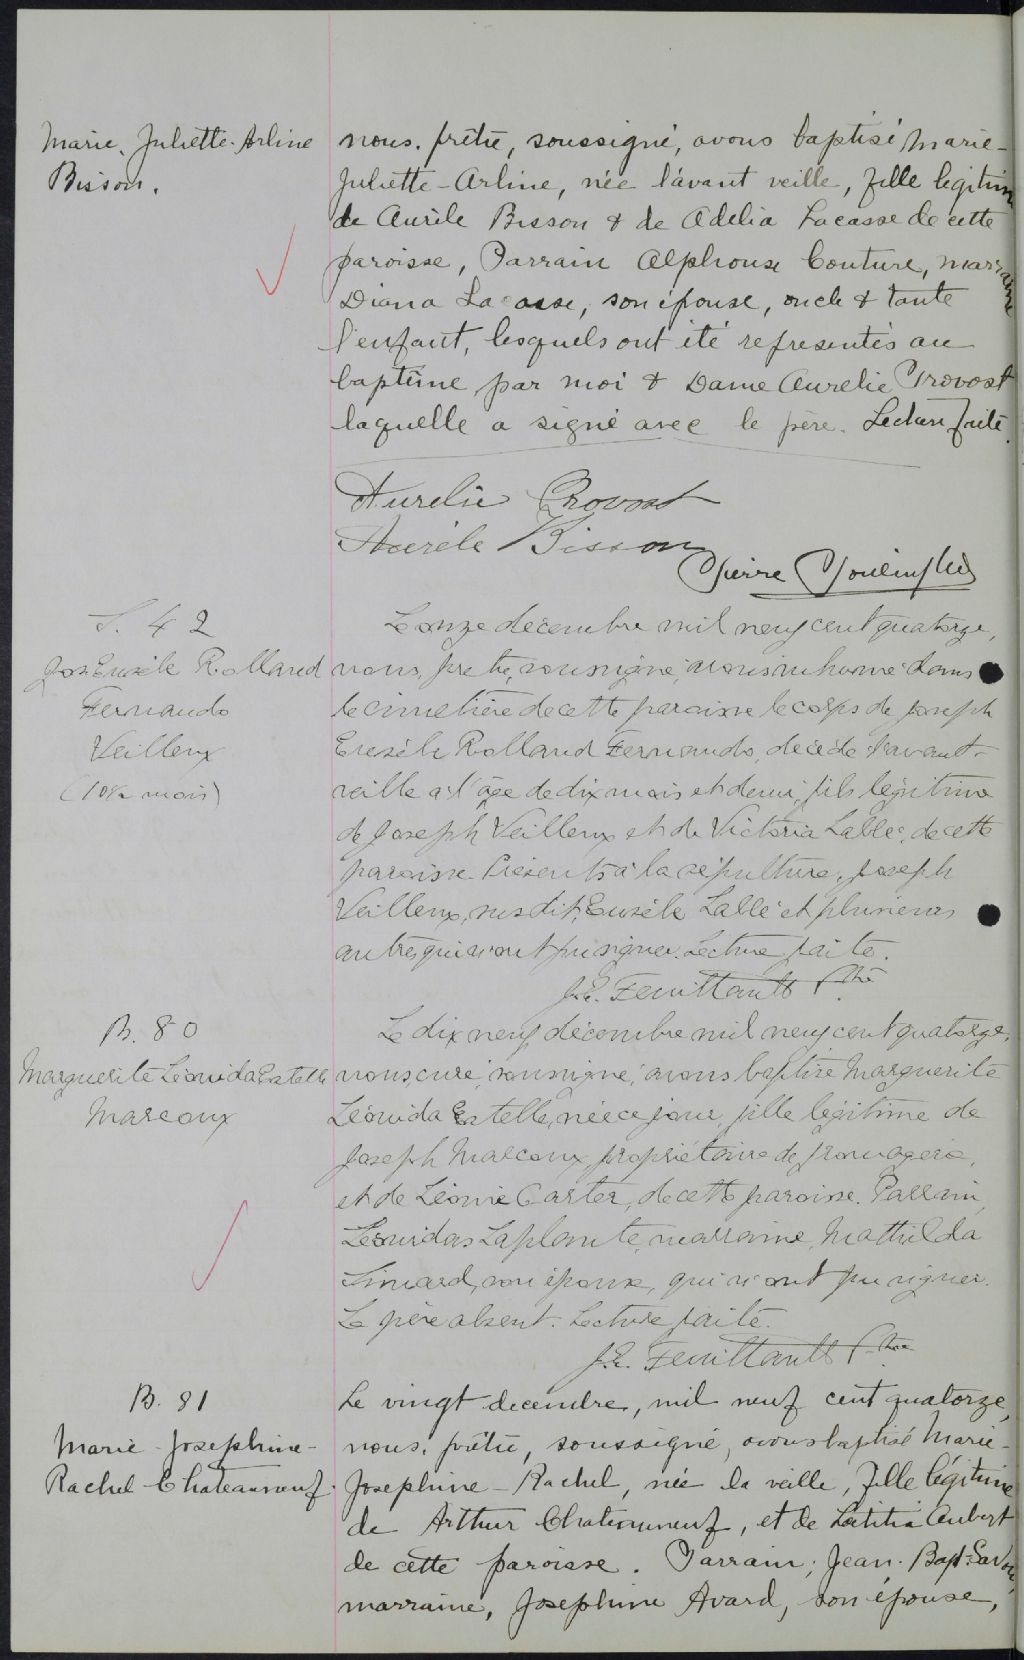 Marie, Juliette-Arline
Bisson.
nous, prêtre, soussigné, avons baptisé Marie-
Juliette-Arline, née l'avant veille, fille légitime
de Aurèle Bisson & de Adélia Lacasse de cette
paroisse, Parrain Alphonse Couture, marraine
Diana Lacasse, son épouse, oncle & tante
l'enfant, lesquels ont été representés au
baptême par moi & Dame Aurelie Provost
laquelle a signé avec le père. Lecture faite.
Aurelie Provost
Aurèle Bisson
Pierre
S. 42
Jos Euzèbe Rolland
Fernando
Veilleux
(10½ mois)
Le onze décembre mil neuf cent quatorze,
nous, prêtre, soussigné, avons inhumé dans
le cimetière de cette paroisse le corps de Joseph
Euzèbe Rolland Fernando, décédé l'avant-
veille à l'âge de dix mois et demi, fils légitime
de Joseph Veilleux et de Victoria Labbé, de cette
paroisse. Présents à la sépulture, Joseph
Veilleux, susdit, Euzèbe Labbé et plusieurs
autres qui n'ont pu signer. Lecture faite.
J.E. Feuiltault Ptre
B. 80
Marguerite Léonida Estelle
Marcoux
Le dix neuf décembre mil neuf cent quatorze,
nous curé, soussigné, avons baptisé Marguerite
Léonida Estelle, née ce jour, fille légitime de
Joseph Marcoux, propriétaire de fromagerie,
et de Léonie Carter, de cette paroisse. Parrain,
Léonidas Laplante, marraine, Mathilda
Simard, son épouse, qui n'ont pu signer.
Le père absent. Lecture faite.
J.E. Feuiltault Ptre
B. 81
Marie-Josephine-
Rachel Chateauneuf.
Le vingt decembre, mil neuf cent quatorze,
nous, prêtre, soussigné, avons baptisé Marie-
Josephine-Rachel, née la veille, fille légitime
de Arthur Chateauneuf, et de Lætitia Aubert
de cette paroisse. Parrain, Jean-Bapt. Savoie,
marraine, Josephine Avard, son épouse,